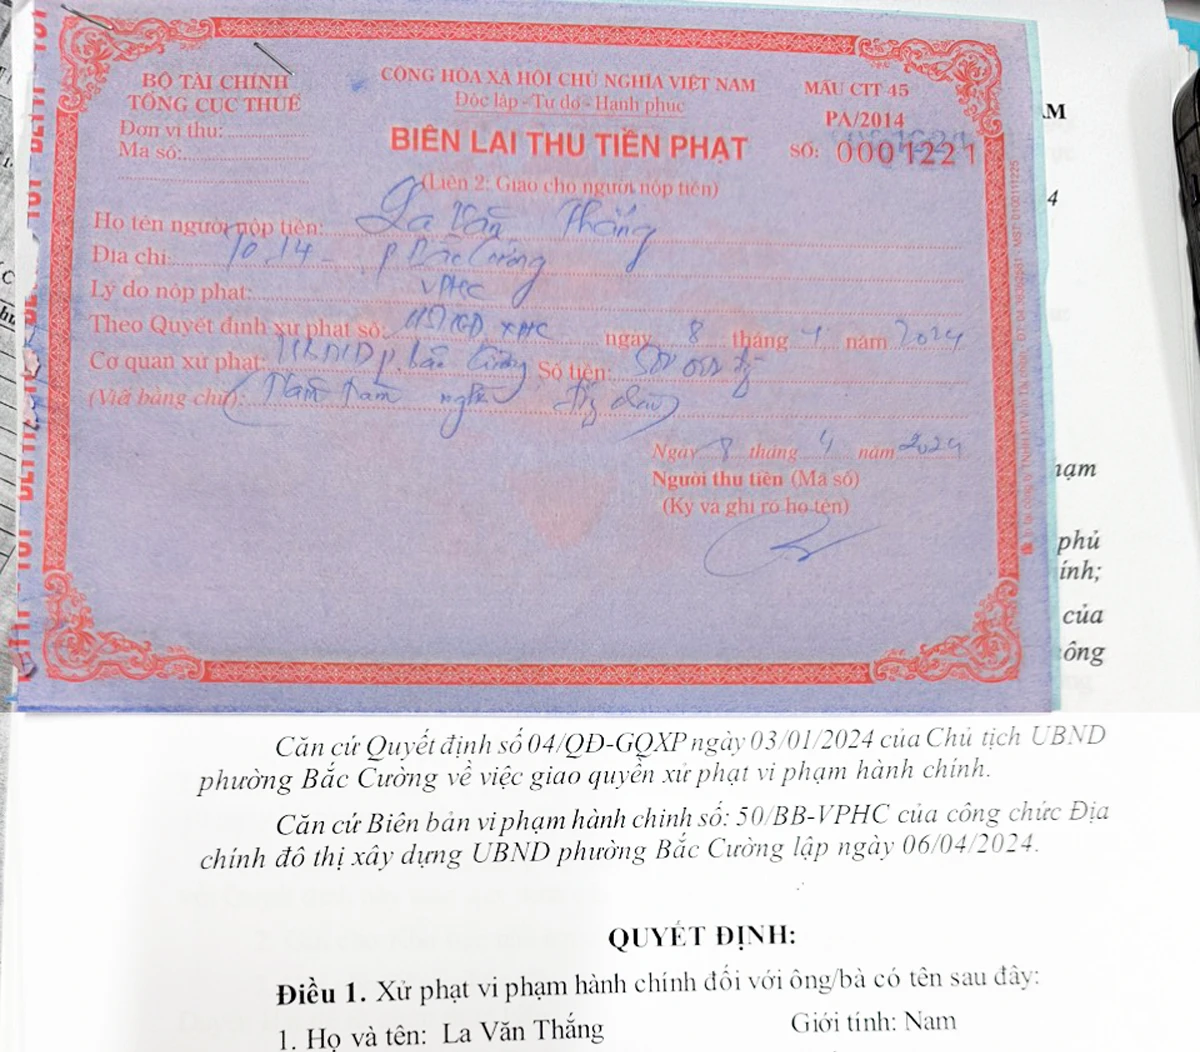 BỘ TÀI CHÍNH
TỔNG CỤC THUẾ
Đơn vị thu:
Mã số:
CỘNG HÒA XÃ HỘI CHỦ NGHĨA VIỆT NAM
Độc lập - Tự do - Hạnh phúc
BIÊN LAI THU TIỀN PHẠT
(Liên 2: Giao cho người nộp tiền)
MẪU CTT 45
PA/2014
SỐ: 0001221
Họ tên người nộp tiền: La Văn Thắng
Địa chỉ: Tổ 14 - P Bắc Cường
Lý do nộp phạt: VPHC
Theo Quyết định xử phạt số: ngày 8 tháng 4 năm 2024
Cơ quan xử phạt: UBND p. Bắc Cường Số tiền: 500 000 đ
(Viết bằng chữ): (Năm trăm nghìn đồng chẵn)
Ngày 8 tháng 4 năm 2024
Người thu tiền (Mã số)
(Ký và ghi rõ họ tên)
AM
4
hạm
phủ
ính;
của
ông
Căn cứ Quyết định số 04/QĐ-GQXP ngày 03/01/2024 của Chủ tịch UBND
phường Bắc Cường về việc giao quyền xử phạt vi phạm hành chính.
Căn cứ Biên bản vi phạm hành chinh số: 50/BB-VPHC của công chức Địa
chính đô thị xây dựng UBND phường Bắc Cường lập ngày 06/04/2024.
QUYẾT ĐỊNH:
Điều 1. Xử phạt vi phạm hành chính đối với ông/bà có tên sau đây:
1. Họ và tên: La Văn Thắng Giới tính: Nam